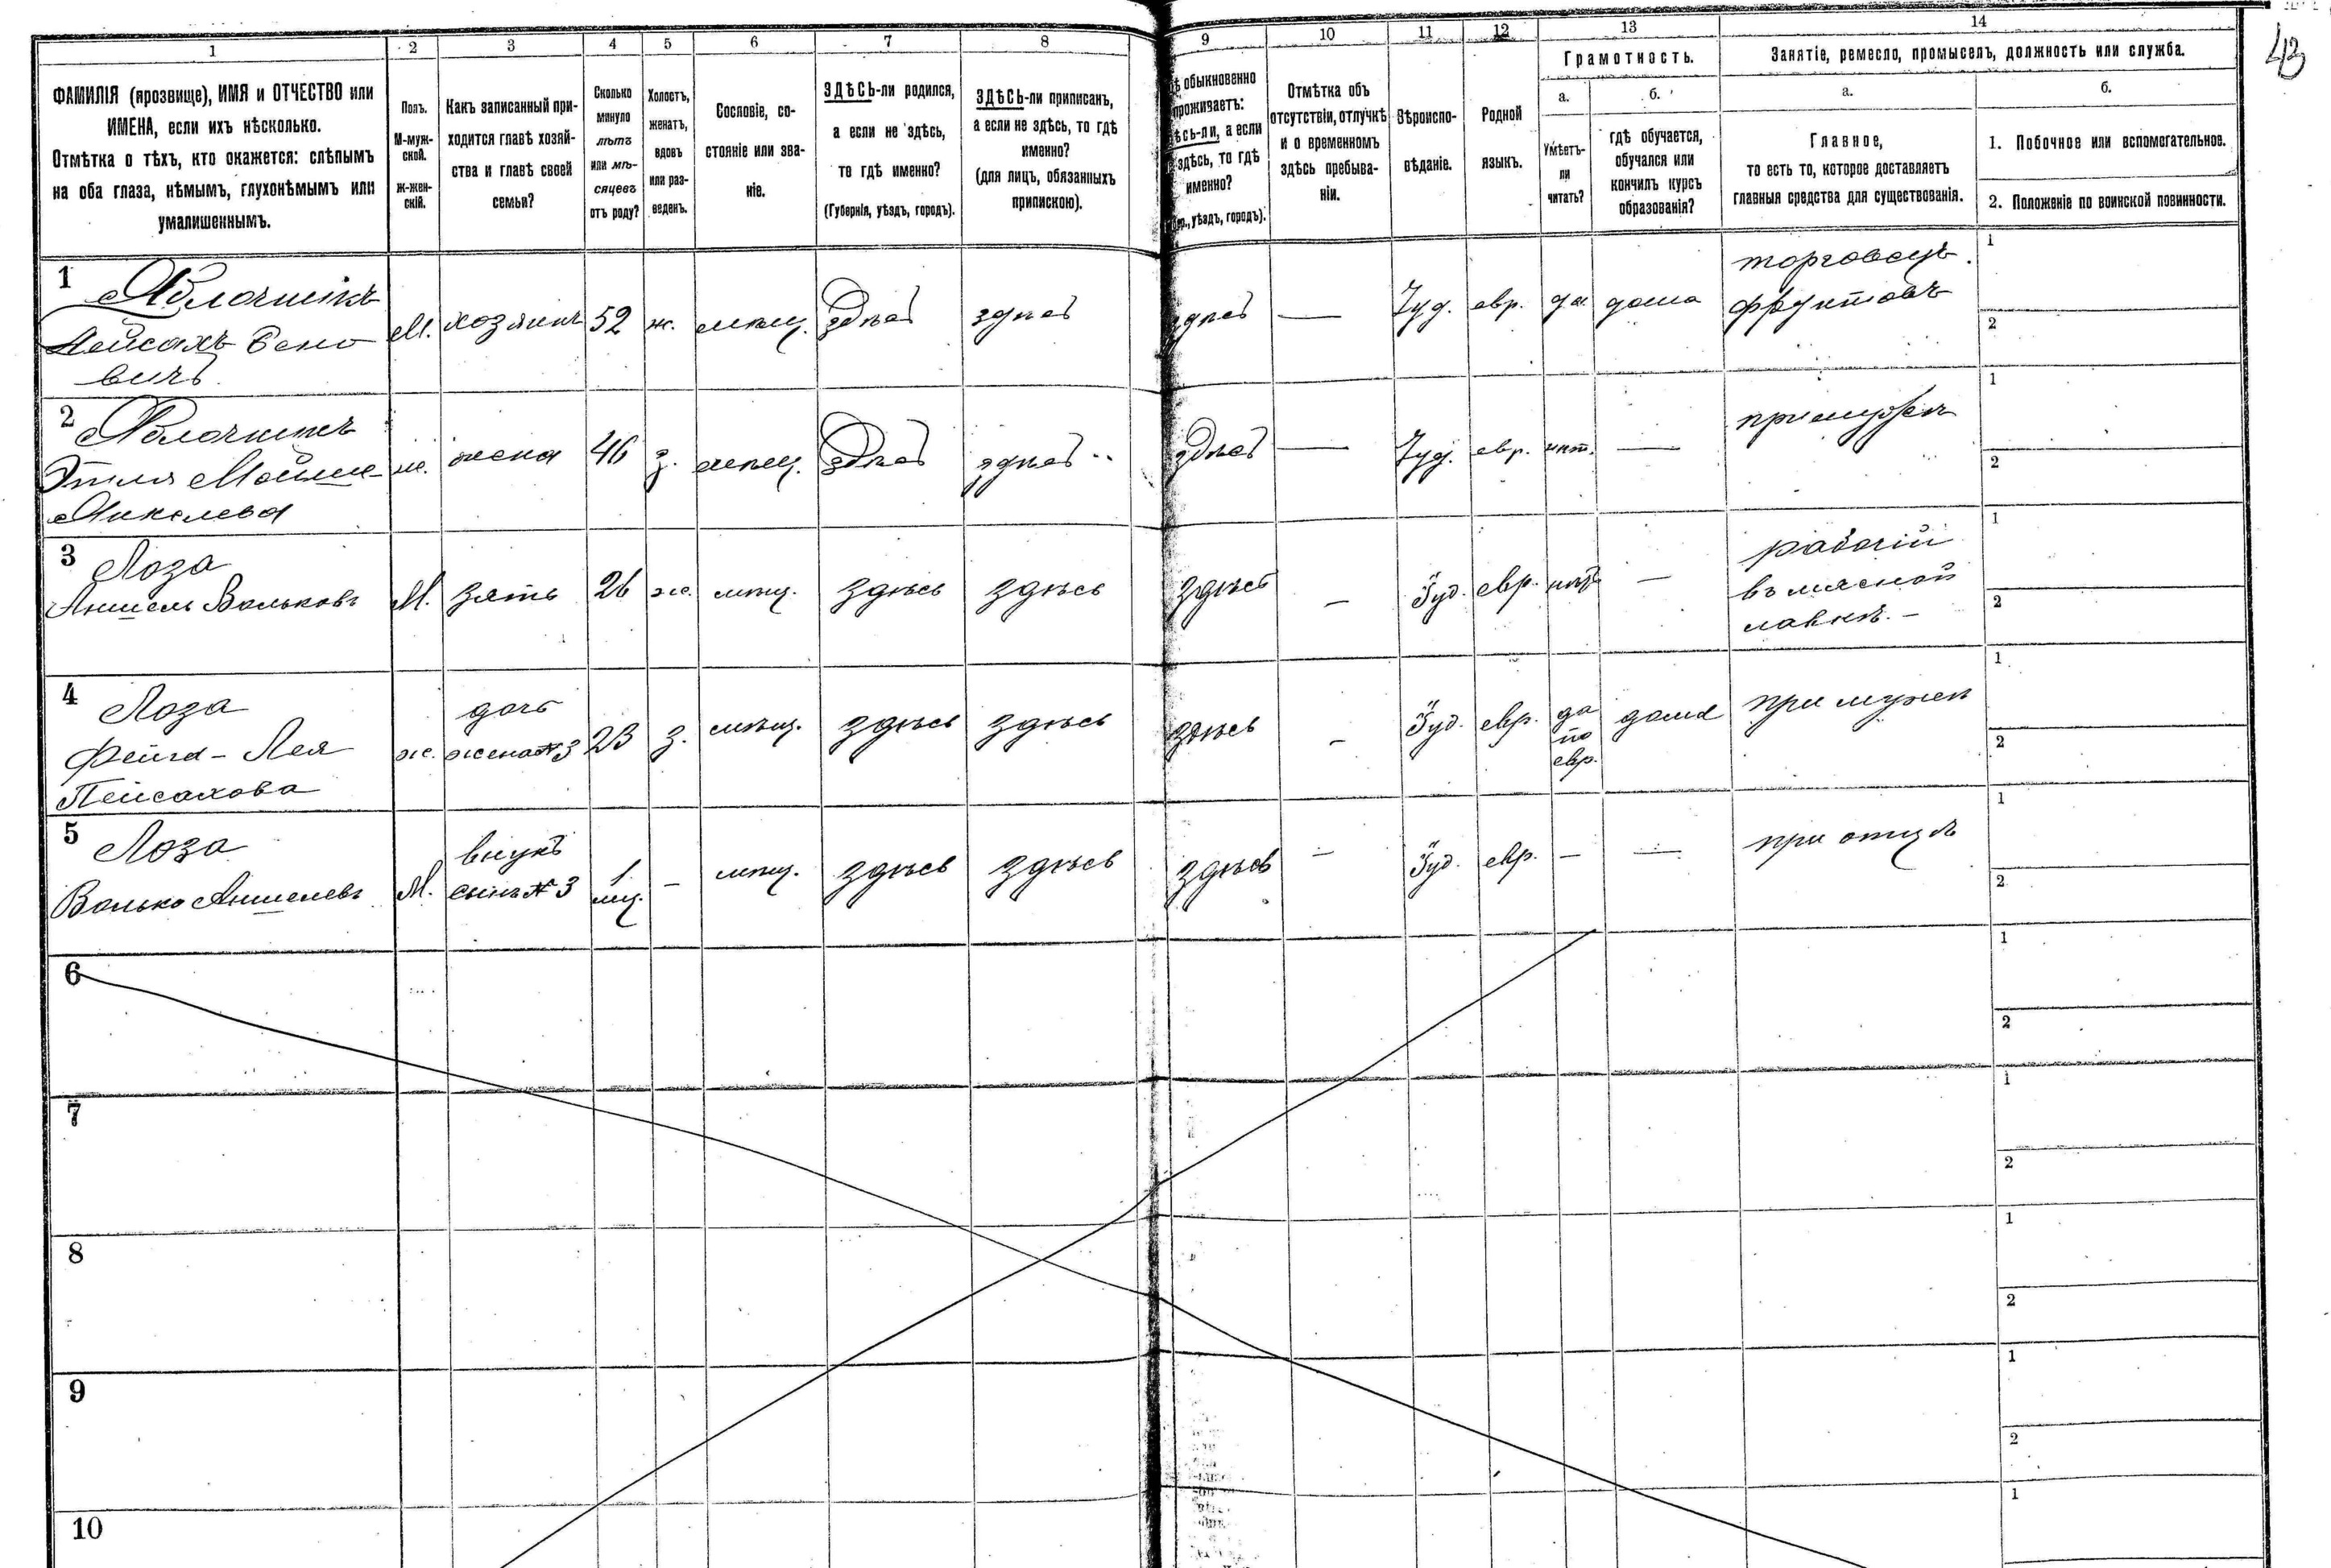 43
1 2 3 4 5 6 7 8 9 10 11 12 13 14
ФАМИЛІЯ (прозвище), ИМЯ и ОТЧЕСТВО или
ИМЕНА, если ихъ нѣсколько.
Отмѣтка о тѣхъ, кто окажется: слѣпымъ
на оба глаза, нѣмымъ, глухонѣмымъ или
умалишеннымъ.
Полъ.
М-муж-
ской.
ж-жен-
скій.
Какъ записанный при-
ходится главѣ хозяй-
ства и главѣ своей
семьи?
Сколько
минуло
лѣтъ
или мѣ-
сяцевъ
отъ роду?
Холостъ,
женатъ,
вдовъ
или раз-
веденъ.
Сословіе, со-
стояніе или зва-
ніе.
ЗДѢСЬ-ли родился,
а если не здѣсь,
то гдѣ именно?
(Губернія, уѣздъ, городъ).
ЗДѢСЬ-ли приписанъ,
а если не здѣсь, то гдѣ
именно?
(для лицъ, обязанныхъ
припискою).
обыкновенно
проживаетъ:
а если
здѣсь, то гдѣ
именно?
уѣздъ, городъ).
Отмѣтка объ
отсутствіи, отлучкѣ
и о временномъ
здѣсь пребыва-
ніи.
Вѣроиспо-
вѣданіе.
Родной
языкъ.
Грамотность.
а. б.
Умѣетъ-
ли
читать?
гдѣ обучается,
обучался или
кончилъ курсъ
образованія?
Занятіе, ремесло, промыселъ, должность или служба.
а. б.
Главное,
то есть то, которое доставляетъ
главныя средства для существованія.
1. Побочное или вспомогательное.
2. Положеніе по воинской повинности.
1 Яблочникъ
Пейсахъ Бено
вичъ
М. хозяинъ 52 ж. мѣщ. здѣсь здѣсь здѣсь — Іуд. евр. да дома
торговецъ
фруктовъ
1
2
2 Яблочникъ
Этля Мошне-
Янкелева
ж. жена 46 з. мѣщ. здѣсь здѣсь здѣсь — Іуд. евр. нѣт. — при мужѣ
1
2
3 Лоза
Аншель Вольковъ
М. зять 26 ж. мѣщ. здѣсь здѣсь здѣсь — Іуд. евр. нѣтъ —
рабочій
въ мясной
лавкѣ. —
1
2
4 Лоза
Фейга-Лея
Пейсахова
ж.
дочь
жена № 3
23 з. мѣщ. здѣсь здѣсь здѣсь — Іуд. евр.
да
по
евр.
дома при мужѣ
1
2
5 Лоза
Волько Аншелевъ
М.
внукъ
сынъ № 3
1
мц.
— мѣщ. здѣсь здѣсь здѣсь — Іуд. евр. — — при отцѣ
1
2
6
1
2
7
1
2
8
1
2
9
1
2
10
1